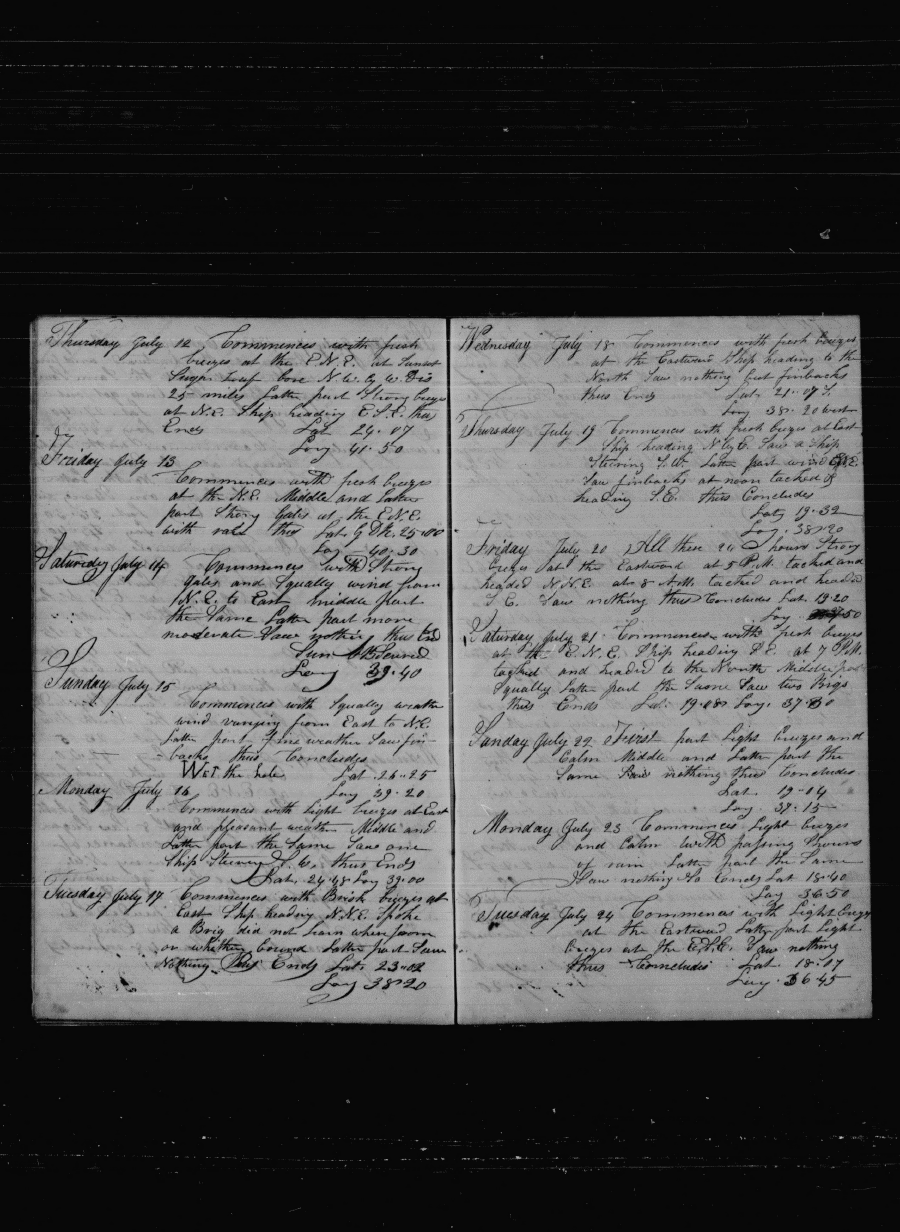 Thursday July 12 Commences with fresh
breezes at the E.N.E. at Sunset
Sugar Loaf bore N.W. by W. Dis
25 miles Latter part Strong breezes
at N.E. Ship heading E.S.E. thus
Ends Lat 24.07
Long 41.50
Friday July 13
Commences with fresh breezes
at the N.E. Middle and Latter
part Strong Gales at the E.N.E.
with rain thus Lat. by DR. 25.00
Long 40.30
Saturday July 14 Commences with Strong
gales and Squally wind from
N.E. to East middle part
the Same Latter part more
moderate Saw nothin thus End
Sum Obscured
Long 39.40
Sunday July 15
Commences with Squally weather
wind varying from East to N.E.
Latter part fine weather Saw fin-
backs thus Concludes
Wet the hole Lat. 25.25
Monday July 16 Long 39.20
Commences with light breezes at East
and pleasant weather Middle and
Latter part the Same Saw one
Ship Steering S.W. thus Ends
Lat. 24.48 Long 39.00
Tuesday July 17 Commences with Brisk breezes at
East Ship heading N.N.E. Spoke
a Brig did not learn where from
or whither bound Latter part Saw
Nothing Thus Ends Lat. 23.02
Long 38.20
Wednesday July 18 Commences with fresh breezes
at the Eastward Ship heading to the
North Saw nothing but finbacks
thus Ends Lat. 21.07 S.
Long 38.20 West
Thursday July 19 Commences with fresh breezes at East
Ship heading N by E. Saw a Ship
Steering S.W. Latter part wind ENE.
Saw finbacks at noon tacked
heading S.E. thus Concludes
Lat 19.32
Long 38.20
Friday July 20 All these 24 hours Strong
breezes at the Eastward at 5 P.M. tacked and
headed N.N.E. at 8 A.M. tacked and headed
S.E. Saw nothing thus Concludes Lat. 19.20
Long 50
Saturday July 21. Commences with fresh breezes
at the E.N.E. Ship heading S.E. at 7 P.M.
tacked and headed to the North Middle part
Squally Latter part the Same Saw two Brigs
thus Ends Lat. 19.08 Long. 37.50
Sunday July 22 First part Light breezes and
Calm Middle and Latter part the
Same Saw nothing thus Concludes
Lat 19.04
Long. 37.15
Monday July 23 Commences Light breezes
and Calm with passing Showers
of rain Latter part the Same
Saw nothing So Ends Lat 18.40
Long 36.50
Tuesday July 24 Commences with Light breezes
at the Eastward Latter part Light
breezes at the E.S.E. Saw nothing
thus Concludes Lat. 18.17
Long. 36.45